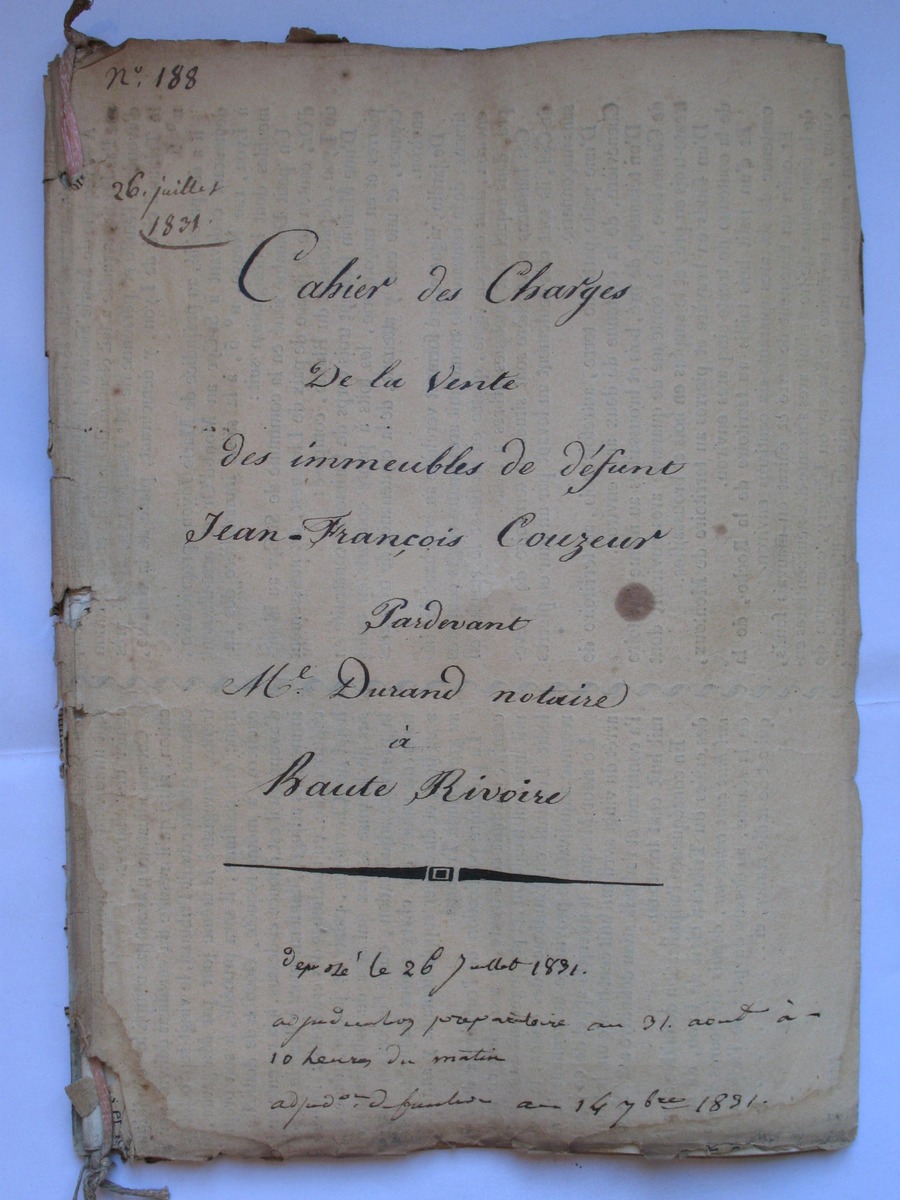 No. 188
26. juillet
1831.
Cahier des Charges
De la Vente
des immeubles de défunt
Jean-François Couzeur
Pardevant
Me. Durand notaire
à
Haute Rivoire
déposé le 26 Juillet 1831.
adjudication preparatoire au 31. aout à
10 heures du matin
adjdon. definitive au 14 7bre 1831.